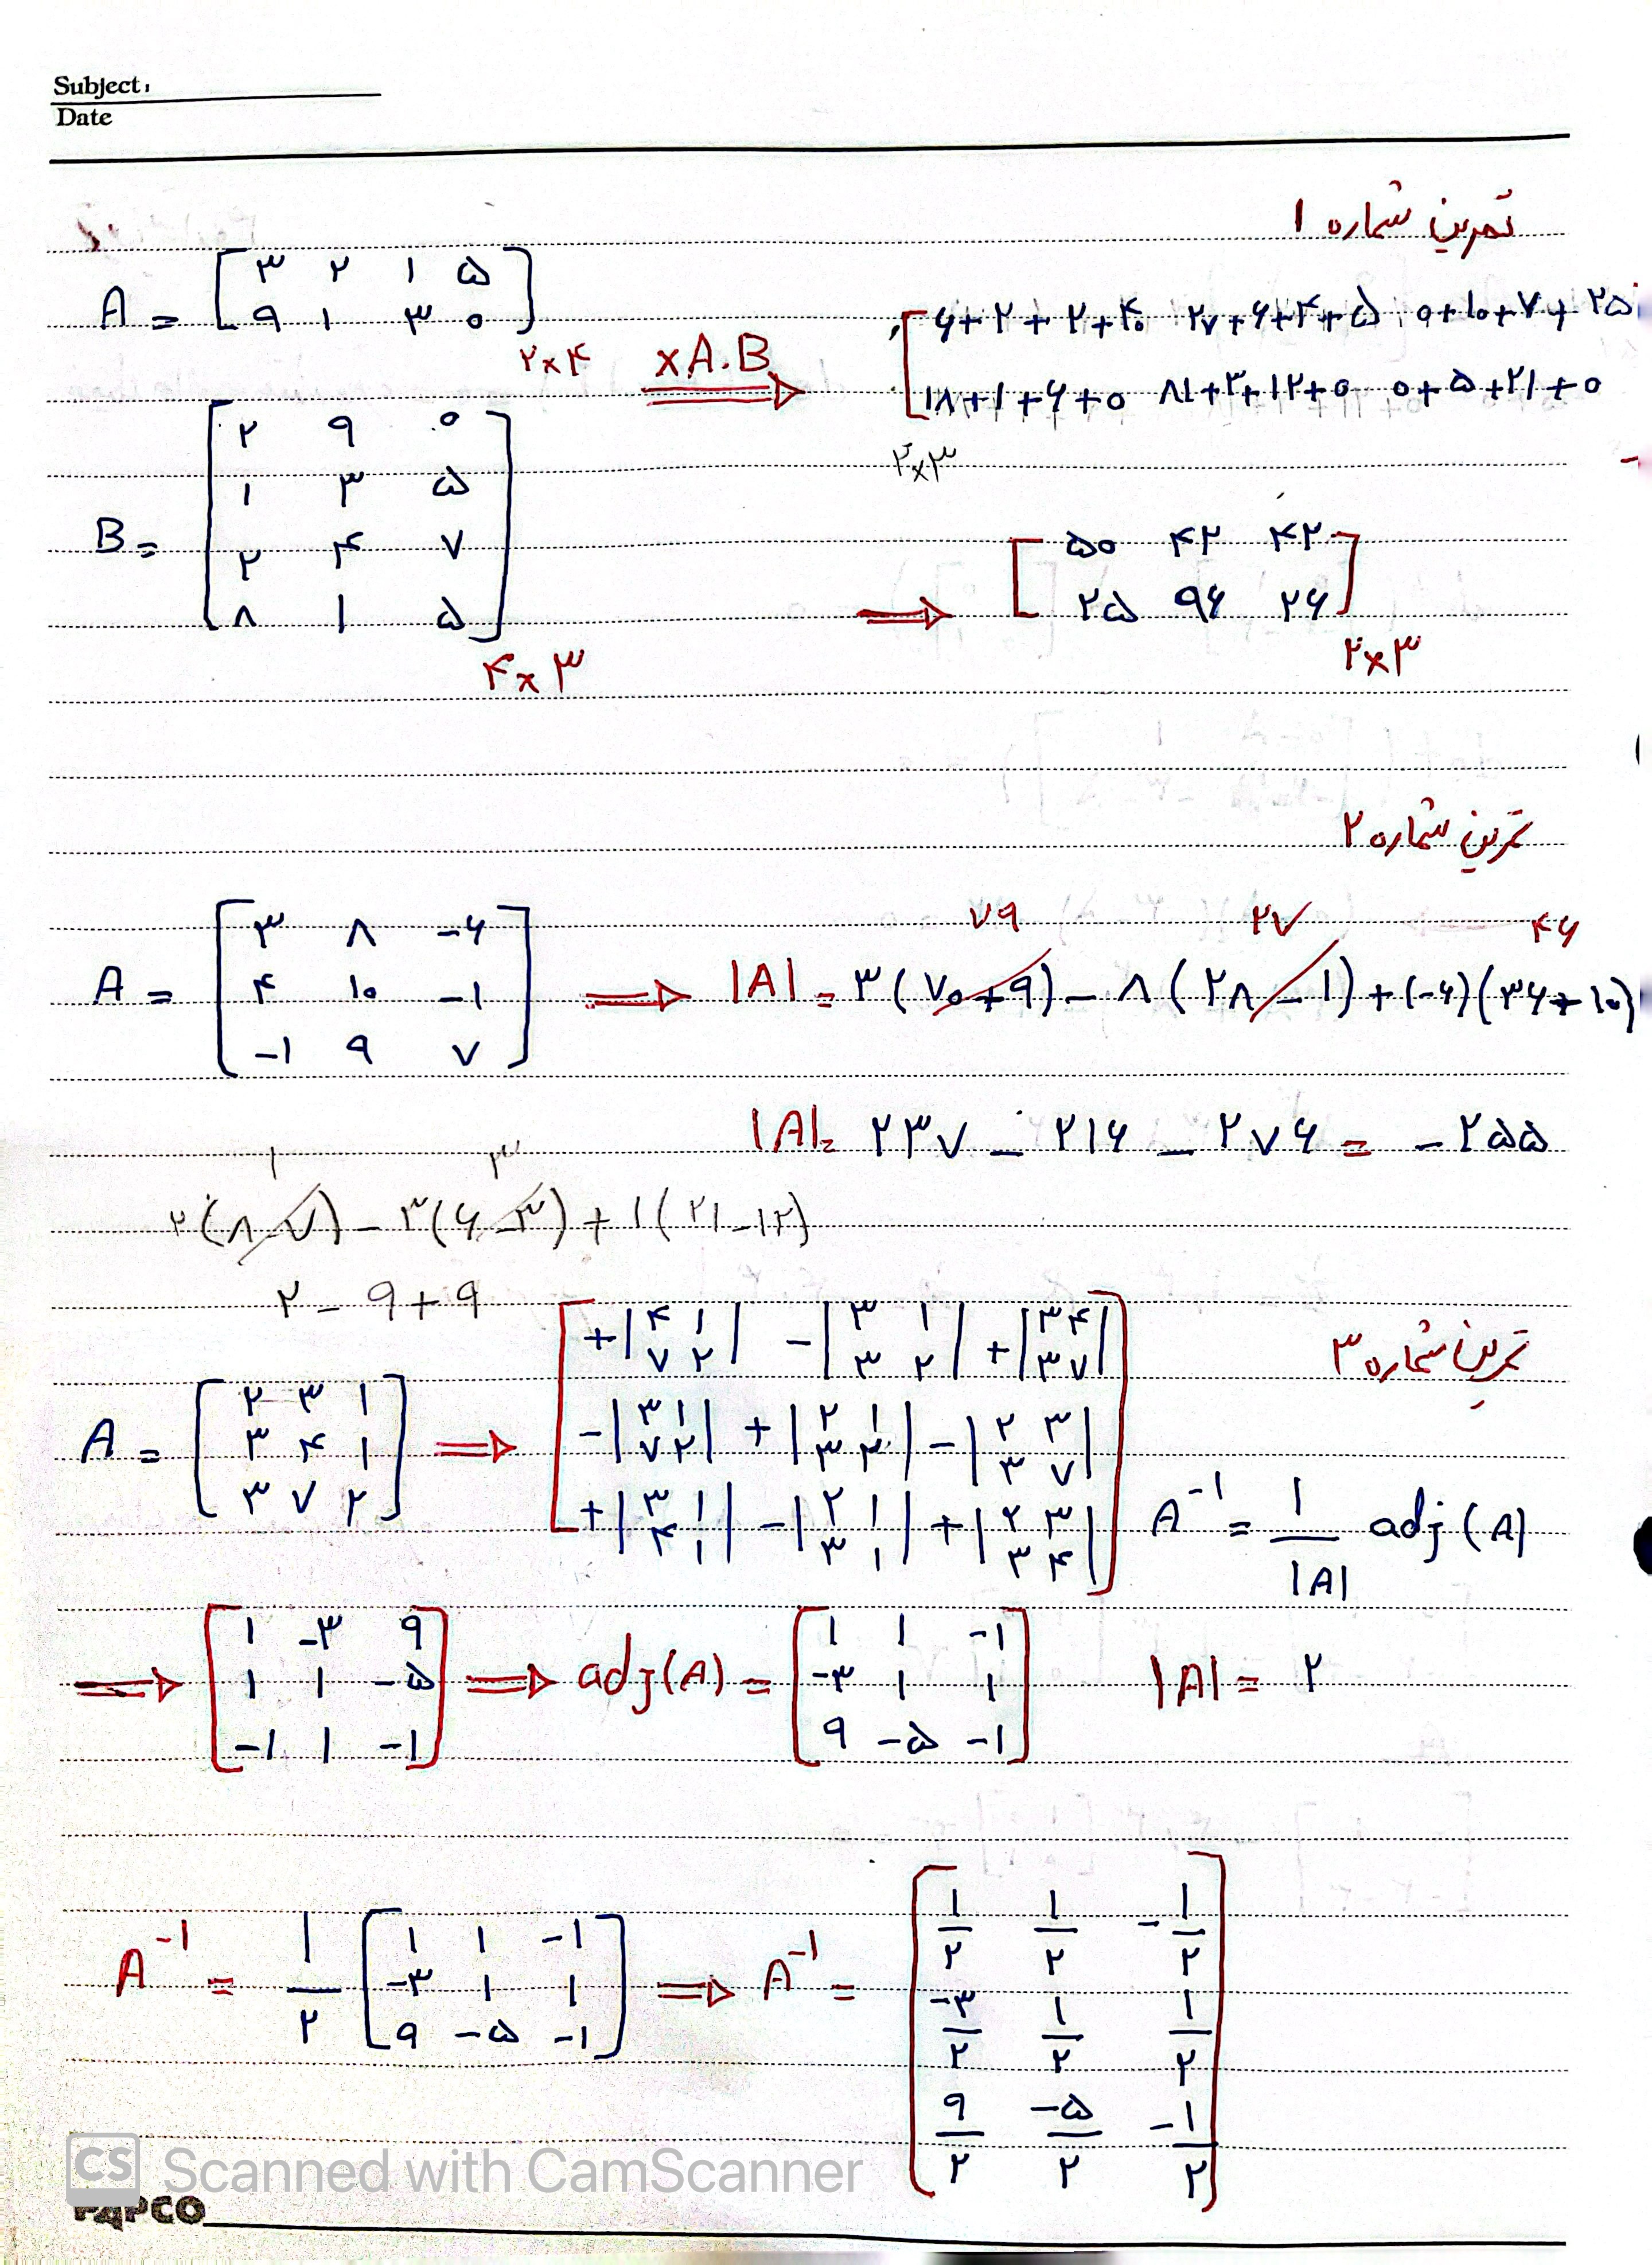 Subject:
Date
تمرین شماره ۱
A = [ ۳ ۲ ۱ ۵
۹ ۱ ۳ ۰ ] ۲×۴
×A.B ⟹
[ ۶+۲+۲+۴۰ ۲۷+۶+۴+۵ ۰+۱۰+۷+۲۵
۱۸+۱+۶+۰ ۸۱+۳+۱۲+۰ ۰+۵+۲۱+۰
۲×۳
B = [ ۲ ۹ ۰
۱ ۳ ۵
۲ ۴ ۷
۸ ۱ ۵ ] ۴×۳
⟹ [ ۵۰ ۴۲ ۴۲
۲۵ ۹۶ ۲۶ ] ۲×۳
تمرین شماره ۲
A = [ ۳ ۸ -۶
۴ ۱۰ -۱
-۱ ۹ ۷ ]
۷۹ ۲۷ ۴۶
⟹ |A| = ۳(۷۰+۹) - ۸(۲۸-۱) + (-۶)(۳۶+۱۰)
|A| = ۲۳۷ - ۲۱۶ - ۲۷۶ = -۲۵۵
۱ ۳
۲(۸-۷) - ۳(۶-۳) + ۱(۲۱-۱۲)
۲ - ۹ + ۹
تمرین شماره ۳
A = [ ۲ ۳ ۱
۳ ۴ ۱
۳ ۷ ۲ ]
⟹ [ +|۴ ۱ ۷ ۲| -|۳ ۱ ۳ ۲| +|۳ ۴ ۳ ۷|
-|۳ ۱ ۷ ۲| +|۲ ۱ ۳ ۲| -|۲ ۳ ۳ ۷|
+|۳ ۱ ۴ ۱| -|۲ ۱ ۳ ۱| +|۲ ۳ ۳ ۴| ]
A⁻¹ = ۱/|A| adj(A)
⟹ [ ۱ -۳ ۹
۱ ۱ -۵
-۱ ۱ -۱ ]
⟹ adj(A) = [ ۱ ۱ -۱
-۳ ۱ ۱
۹ -۵ -۱ ]
|A| = ۲
A⁻¹ = ۱/۲ [ ۱ ۱ -۱
-۳ ۱ ۱
۹ -۵ -۱ ]
⟹ A⁻¹ = [ ۱/۲ ۱/۲ -۱/۲
-۳/۲ ۱/۲ ۱/۲
۹/۲ -۵/۲ -۱/۲ ]
CS Scanned with CamScanner
PAPCO